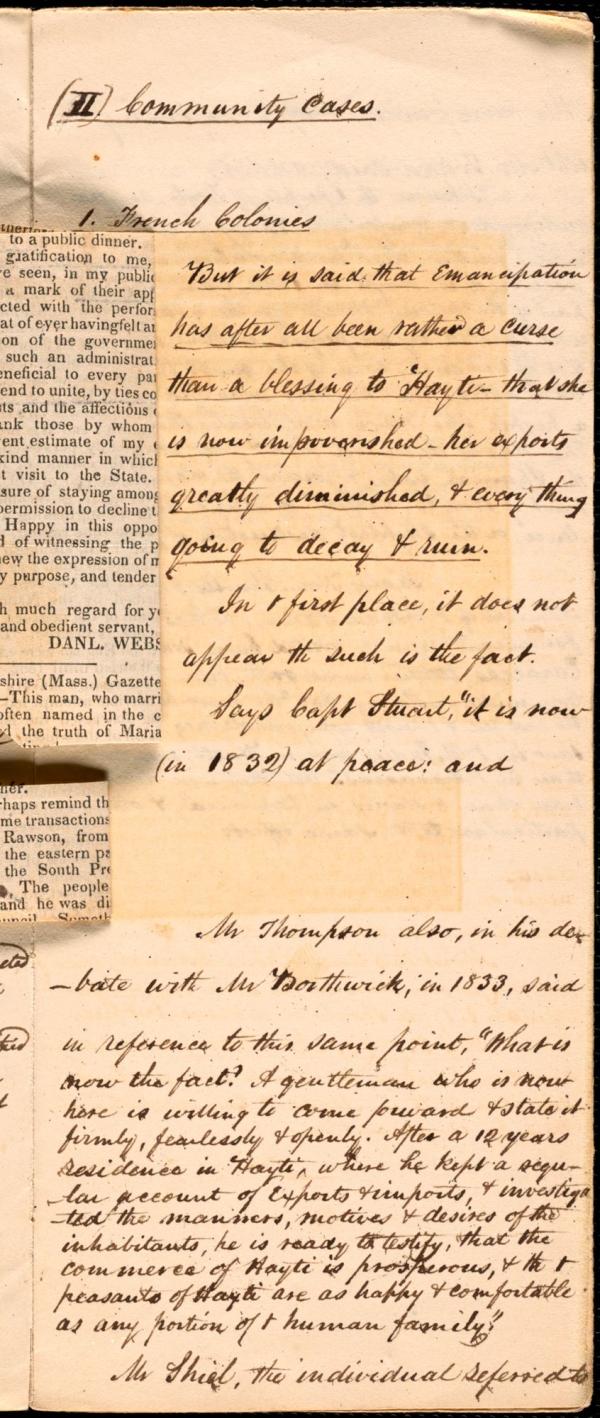 (II) Community Cases.
1. French Colonies
to a public dinner.
gratification to me,
e seen, in my public
a mark of their app
cted with the perfor
at of ever having felt an
on of the governme
such an administrat
eneficial to every pa
end to unite, by ties co
ts and the affections
ank those by whom
ent estimate of my
kind manner in which
t visit to the State.
sure of staying among
permission to decline t
Happy in this oppo
d of witnessing the p
new the expression of m
y purpose, and tender
h much regard for yo
and obedient servant,
DANL. WEBS
shire (Mass.) Gazette
—This man, who marri
often named in the c
d the truth of Maria
her.
rhaps remind th
me transactions
Rawson, from
the eastern pa
the South Pre
The people
and he was di
ouncil. Someth
But it is said that Emancipation
has after all been rather a curse
than a blessing to Hayti – that she
is now impoverished – her exports
greatly diminished, & every thing
going to decay & ruin.
In t first place, it does not
appear th such is the fact.
Says Capt Stuart, "it is now
(in 1832) at peace: and
Mr Thompson also, in his de-
-bate with Mr Borthwick, in 1833, said
in reference to this same point, "What is
now the fact? A gentleman who is now
here is willing to come forward & state it
firmly, fearlessly & openly. After a 12 years
residence in Hayti, where he kept a regu-
-lar account of Exports & imports, & investiga
-ted the manners, motives & desires of the
inhabitants, he is ready to testify, that the
commerce of Hayti is prosperous, & th t
peasants of Hayti are as happy & comfortable
as any portion of t human family."
Mr Shiel, the individual referred to